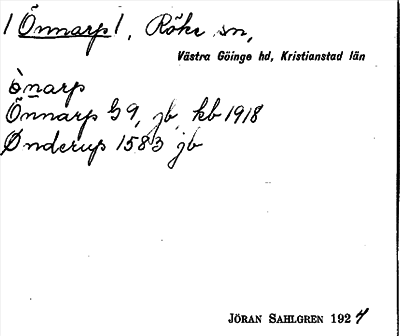 /Önnarp/, Röke sn,
Västra Göinge hd, Kristianstad län
ònarp
Önnarp G 9, jb, kb 1918
Ønderup 1583 jb
JÖRAN SAHLGREN 1924